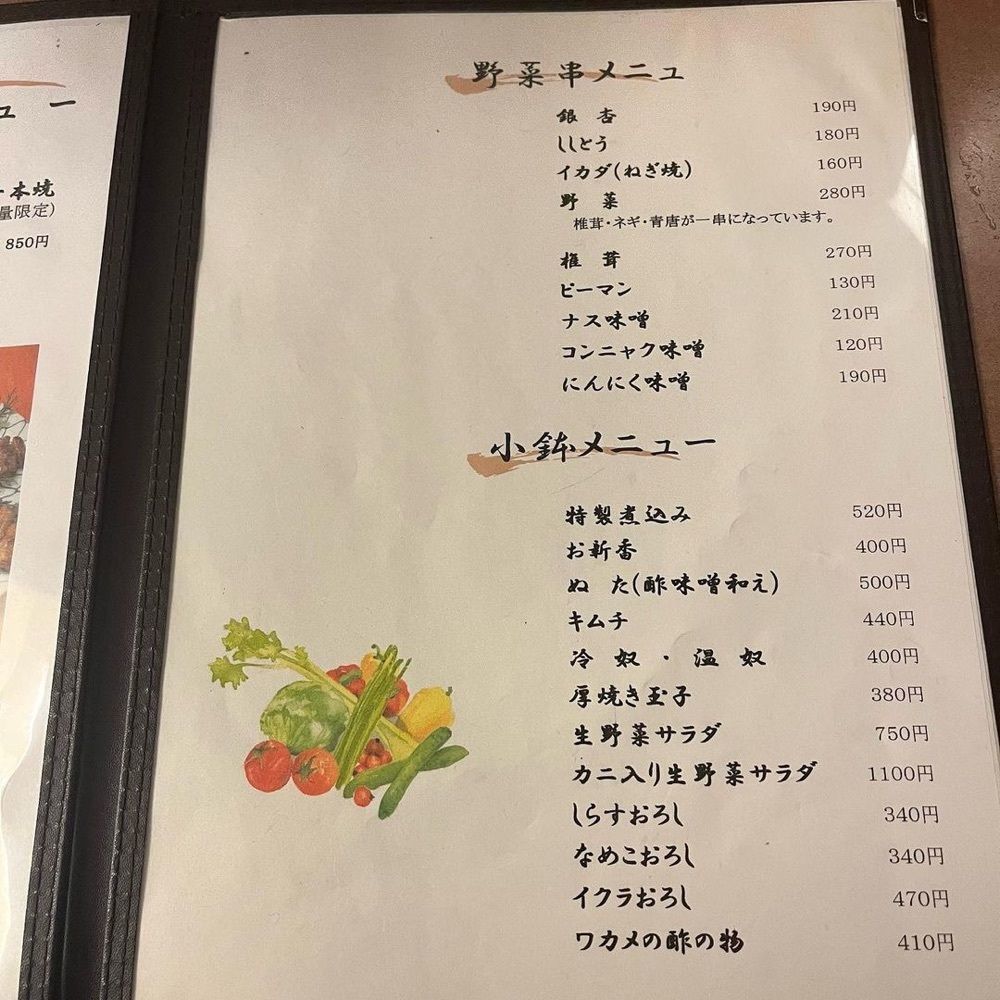 ュー
本焼
量限定)
850円
野菜串メニュ
銀 杏 190円
ししとう 180円
イカダ(ねぎ焼) 160円
野 菜 280円
椎茸・ネギ・青唐が一串になっています。
椎 茸 270円
ピーマン 130円
ナス味噌 210円
コンニャク味噌 120円
にんにく味噌 190円
小鉢メニュー
特製煮込み 520円
お新香 400円
ぬ た(酢味噌和え) 500円
キムチ 440円
冷 奴 ・ 温 奴 400円
厚焼き玉子 380円
生野菜サラダ 750円
カニ入り生野菜サラダ 1100円
しらすおろし 340円
なめこおろし 340円
イクラおろし 470円
ワカメの酢の物 410円